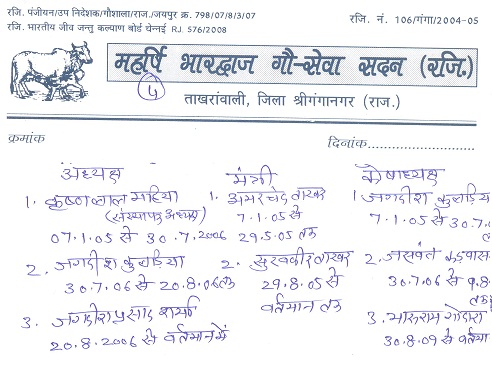 रजि. पंजीयन/उप निदेशक/गौशाला/राज./जयपुर क्र. 798/07/8/3/07
रजि. भारतीय जीव जन्तु कल्याण बोर्ड चेन्नई RJ. 576/2008
रजि. नं. 106/गंगा/2004-05
महर्षि भारद्वाज गौ-सेवा सदन (रजि.)
ताखरांवाली, जिला श्रीगंगानगर (राज.)
क्रमांक
दिनांक
अध्यक्ष मंत्री कोषाध्यक्ष
1. कृष्णलाल सहिया 1. अमरचंद ताखर 1. जगदीश
(संस्थापक अध्यक्ष) 7.1.05 से 7.1.05 से 30.7.0
07.1.05 से 30.7.2006 29.5.05 तक
2. जगदीश 2. सुखवीर ताखर 2. जसवंत
30.7.06 से 20.8.06 तक 29.8.05 से 30.7.06 से
वर्तमान तक तक
3. जगदीश प्रसाद शर्मा 3. गोदारा
20.8.2006 से वर्तमान में 30.8.09 से वर्तमा